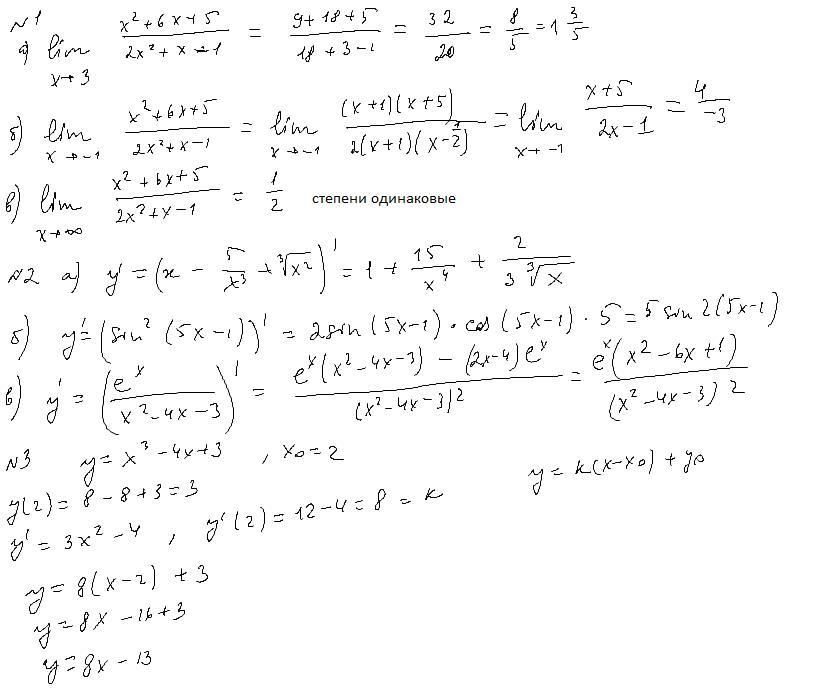 №1
а) lim x→3 (x²+6x+5)/(2x²+x-1) = (9+18+5)/(18+3-1) = 32/20 = 8/5 = 1 3/5
б) lim x→-1 (x²+6x+5)/(2x²+x-1) = lim x→-1 ((x+1)(x+5))/(2(x+1)(x-1/2)) = lim x→-1 (x+5)/(2x-1) = 4/-3
в) lim x→∞ (x²+6x+5)/(2x²+x-1) = 1/2 степени одинаковые
№2 а) y' = (x - 5/x³ + ∛x²)' = 1 + 15/x⁴ + 2/(3∛x)
б) y' = (sin²(5x-1))' = 2sin(5x-1)·cos(5x-1)·5 = 5 sin2(5x-1)
в) y' = (eˣ/(x²-4x-3))' = (eˣ(x²-4x-3) - (2x-4)eˣ)/(x²-4x-3)² = eˣ(x²-6x+1)/(x²-4x-3)²
№3 y = x³-4x+3, x₀=2
y = k(x-x₀)+y₀
y(2) = 8-8+3 = 3
y' = 3x²-4, y'(2) = 12-4 = 8 = k
y = 8(x-2)+3
y = 8x-16+3
y = 8x-13